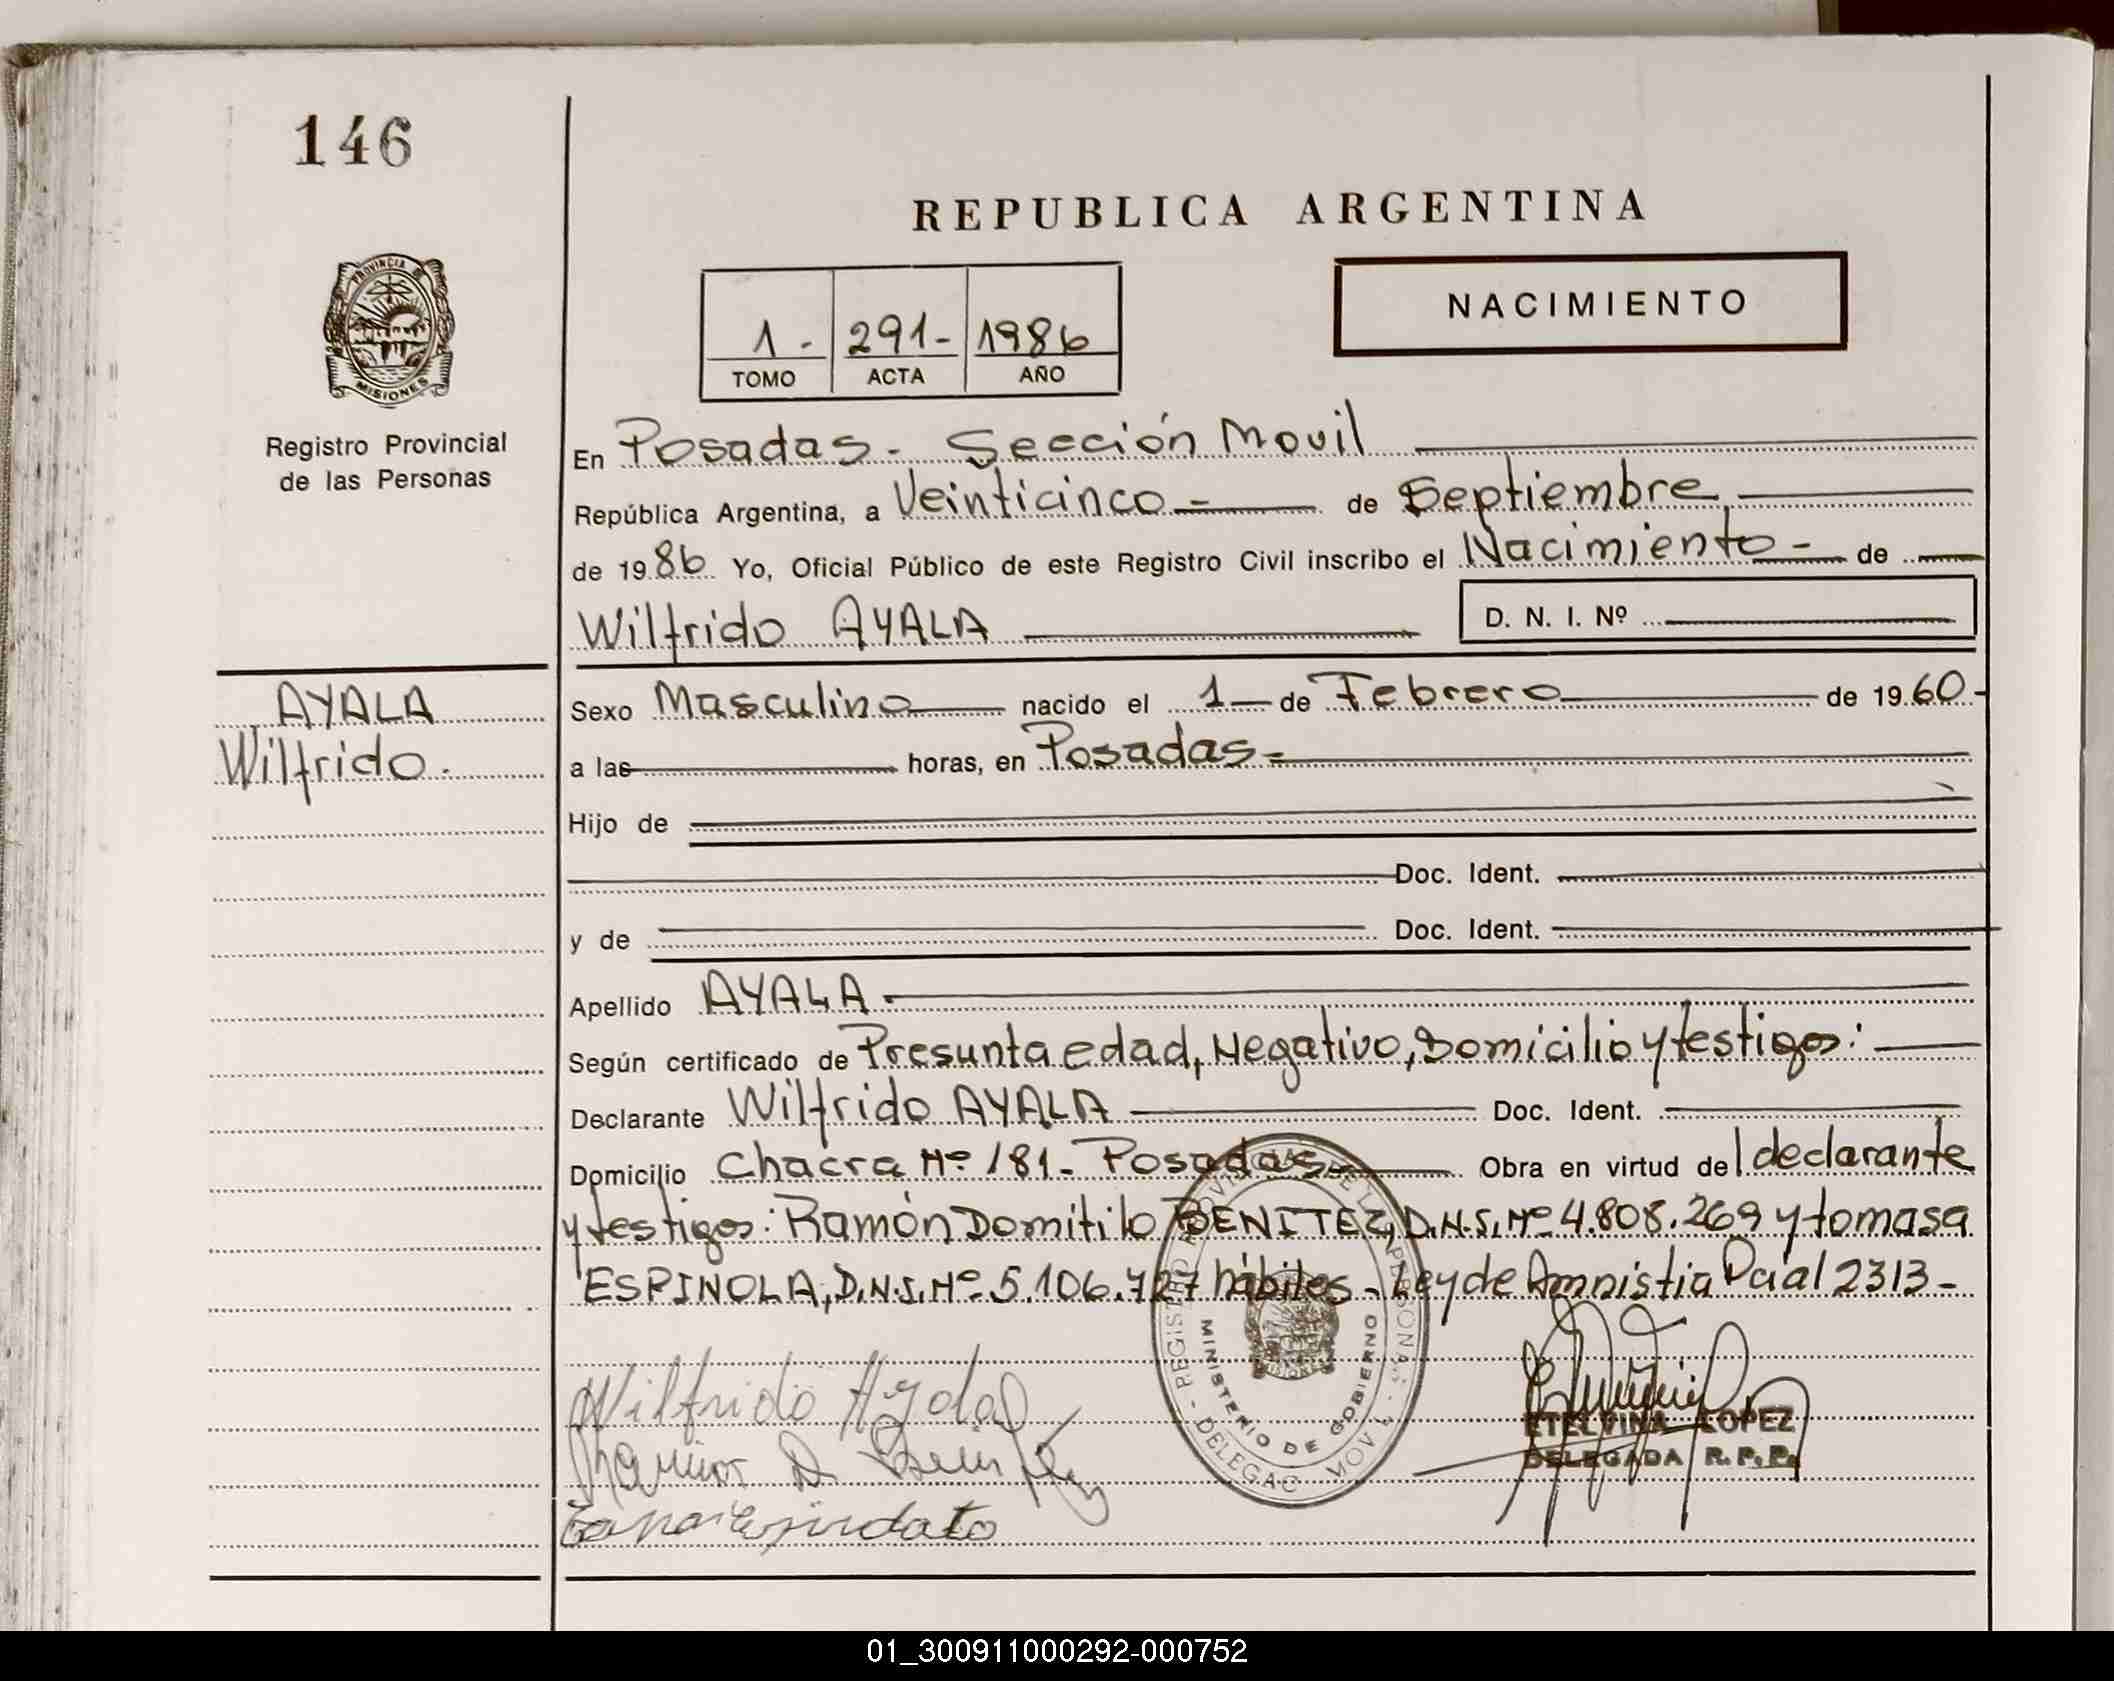 146
REPUBLICA ARGENTINA
PROVINCIA DE
MISIONES
1 - 291 - 1986
TOMO ACTA AÑO
NACIMIENTO
Registro Provincial
de las Personas
En Posadas - Sección Movil
República Argentina, a Veinticinco - de Septiembre
de 19 86 Yo, Oficial Público de este Registro Civil inscribo el Nacimiento - de
Wilfrido AYALA
D. N. I. Nº
AYALA
Wilfrido.
Sexo Masculino nacido el 1 de Febrero de 19 60-
a las horas, en Posadas -
Hijo de
Doc. Ident.
y de Doc. Ident.
Apellido AYALA.
Según certificado de Presunta edad, Negativo, Domicilio y testigos:
Declarante Wilfrido AYALA Doc. Ident.
Domicilio Chacra Nº 181 - Posadas - Obra en virtud del declarante
y testigos: Ramón Domitilo BENITEZ, D.N.I. Nº 4.808.269 y tomasa
ESPINOLA, D.N.I. Nº 5.106.727 hábiles - Ley de Amnistia Pcial 2313 -
Wilfrido Ayala
Ramon D. Benitez
MINISTERIO DE GOBIERNO
ETELVINA LOPEZ
DELEGADA R.P.P.
01_300911000292-000752